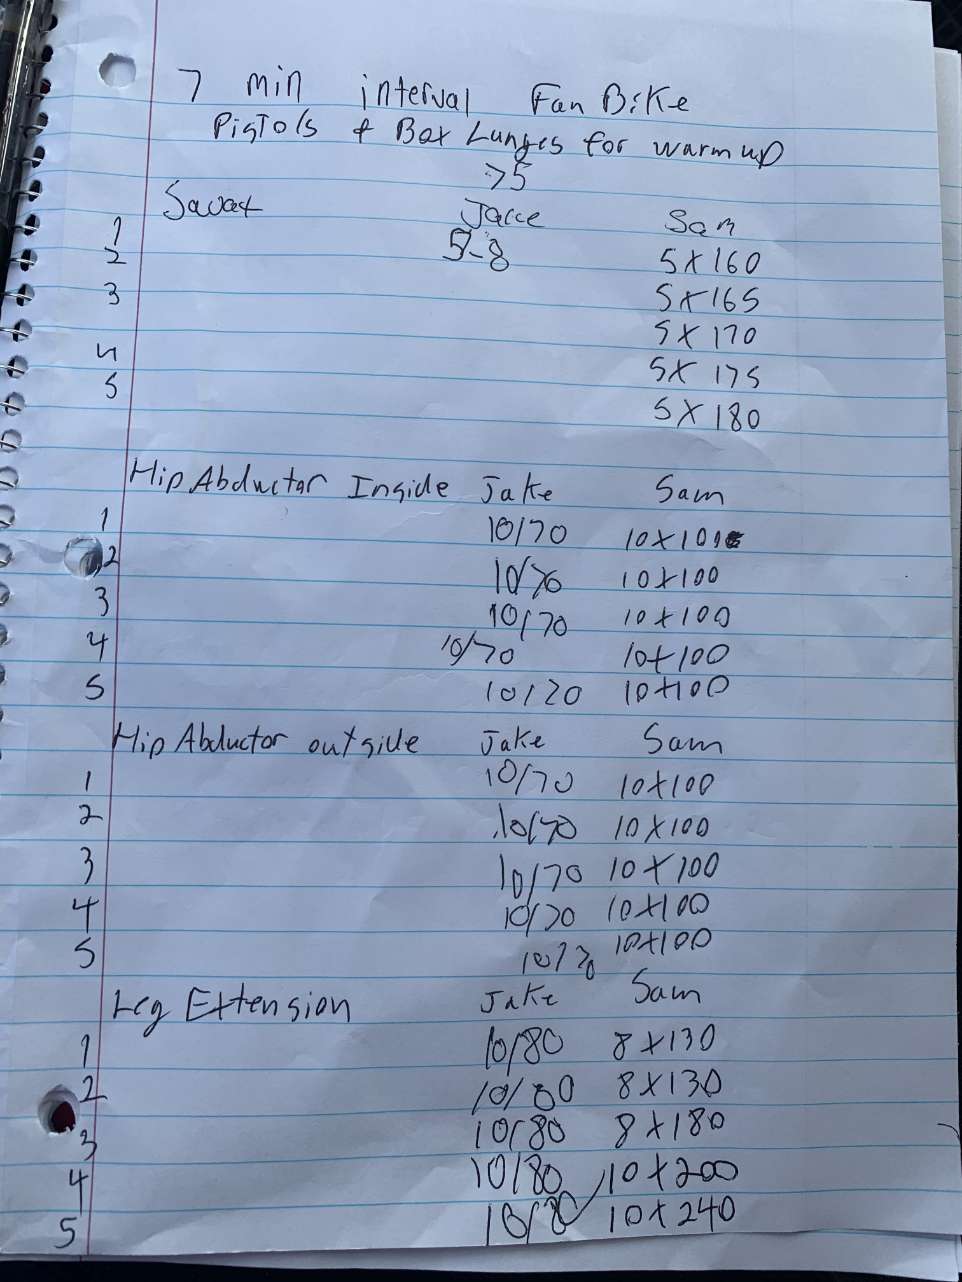 7 min interval Fan Bike
Pistols & Box Lunges for warm up
>5
Jake Sam
1
2 5-8 5x160
3 5x165
5x170
4 5x175
5 5x180
Hip Abductor Inside Jake Sam
1 10/70 10x100
2 10/70 10x100
3 10/70 10x100
4 10/70 10x100
5 10/70 10x100
Hip Abductor outside Jake Sam
1 10/70 10x100
2 10/70 10x100
3 10/70 10x100
4 10/70 10x100
5 10/70 10x100
Leg Extension Jake Sam
1 10/80 8x130
2 10/80 8x130
3 10/80 8x180
4 10/80 10x200
5 10/80 10x240